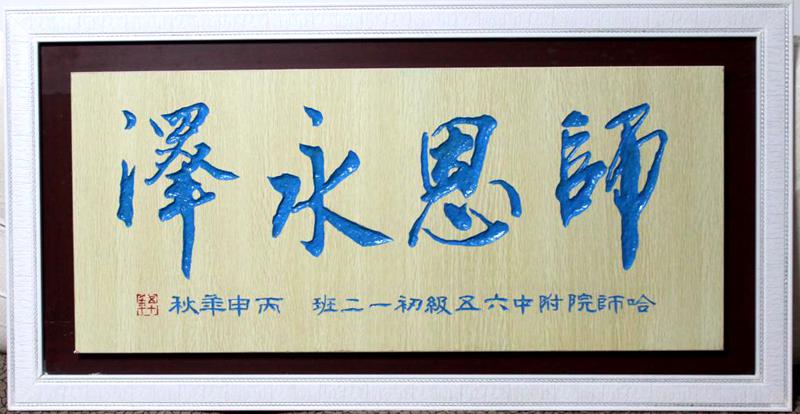 師恩永澤
哈師院附中六五級初一二班 丙申年秋